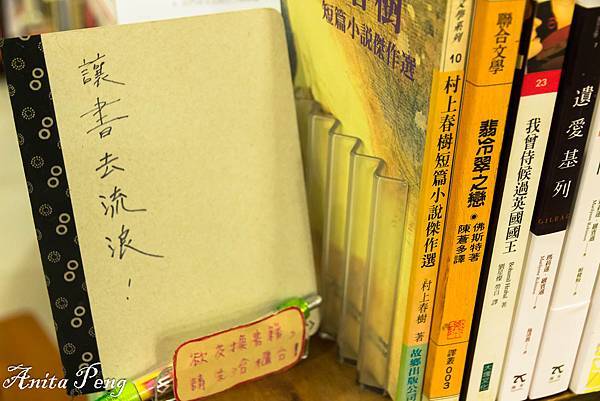 讓書去流浪！
欲交換書籍，
請先洽櫃台！
春樹
短篇小說傑作選
文學系列
10
村上春樹短篇小說傑作選
村上春樹 著
故鄉出版公司
聯合文學
翡冷翠之戀
佛斯特著
陳蒼多譯
譯叢003
23
我曾侍候過英國國王
遺愛基列
GILEAD
Anita Peng